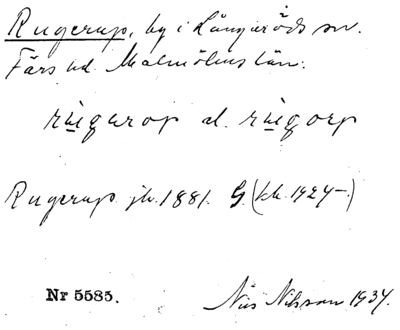 Rugerup, by i Långaröds sn.
Färs hd. Malmöhus län.
rugarop el. rugorp
Rugerup jb. 1881. G. (kk. 1924–)
Nr 5585.
Nils Nilsson 1934.